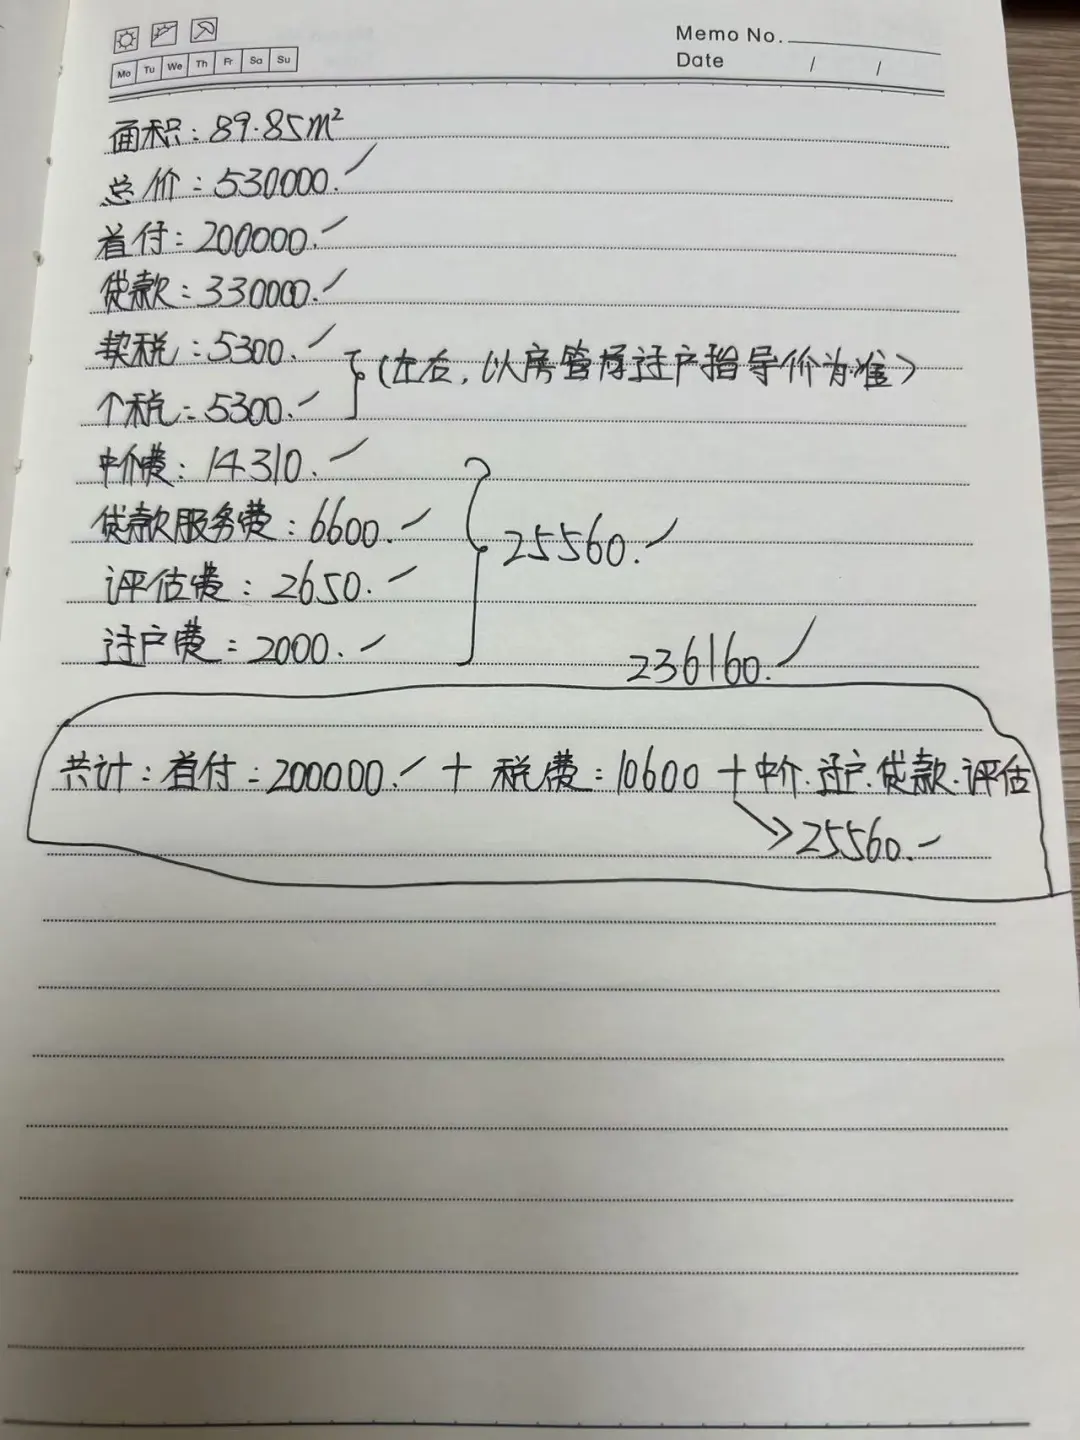 Memo No.
Mo Tu We Th Fr Sa Su
Date / /
面积：89.85m²
总价：530000.
首付：200000.
贷款：330000.
契税：5300.
(左右，以房管局过户指导价为准)
个税：5300.
中介费：14310.
贷款服务费：6600.
25560.
评估费：2650.
过户费：2000.
236160.
共计：首付：200000. + 税费：10600 + 中介.过户.贷款.评估
25560.